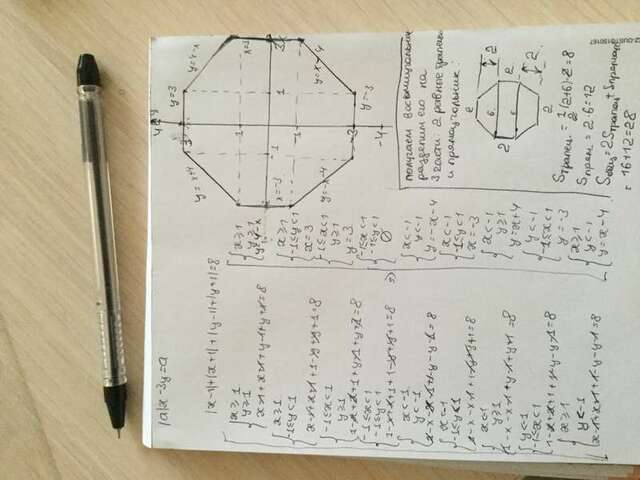 |a|x-3y=a
|x-1|+|x+1|+|y-1|+|y+1|=8
x≥1
y≥1
x-1+x+1+y-1+y+1=8
x≥1
-1≤y<1
x-1+x+1+1-y+y+1=8
-1≤x<1
y≥1
1-x+x+1+y-1+y+1=8
-1≤x<1
-1≤y<1
1-x+x+1+1-y+y+1=8
x<-1
y<-1
1-x-x-1+1-y-y-1=8
x<-1
-1≤y<1
1-x-x-1+1-y+y+1=8
x<-1
y≥1
1-x-x-1+y-1+y+1=8
y<-1
-1≤x<1
1-x+x+1+1-y-y-1=8
x≥1
y<-1
x-1+x+1+1-y-y-1=8
x≥1
y≥1
y=4-x
x≥1
-1≤y<1
x=3
-1≤x<1
y≥1
y=3
-1≤x<1
-1≤y<1
∅
x<-1
y<-1
y=-x-4
x<-1
-1≤y<1
x=-3
x<-1
y≥1
y=x+4
y<-1
-1≤x<1
y=-3
x≥1
y<-1
y=x-4
4 y
3 y=3
y=x+4
y=4-x
1
x=3
x=-3
-1
1
3
x
-1
y=-x-4
y=x-4
-3
y=-3
-4
получаем восьмиугольник
разделим его на
3 части: 2 равные трапеции
и прямоугольник:
2
6
2
2
2
6
2
2
Sтрапец = 1/2(2+6)·2=8
Sпрям = 2·6=12
Sобщ=2Sтрапец+Sпрямоуг
= 16+12=28